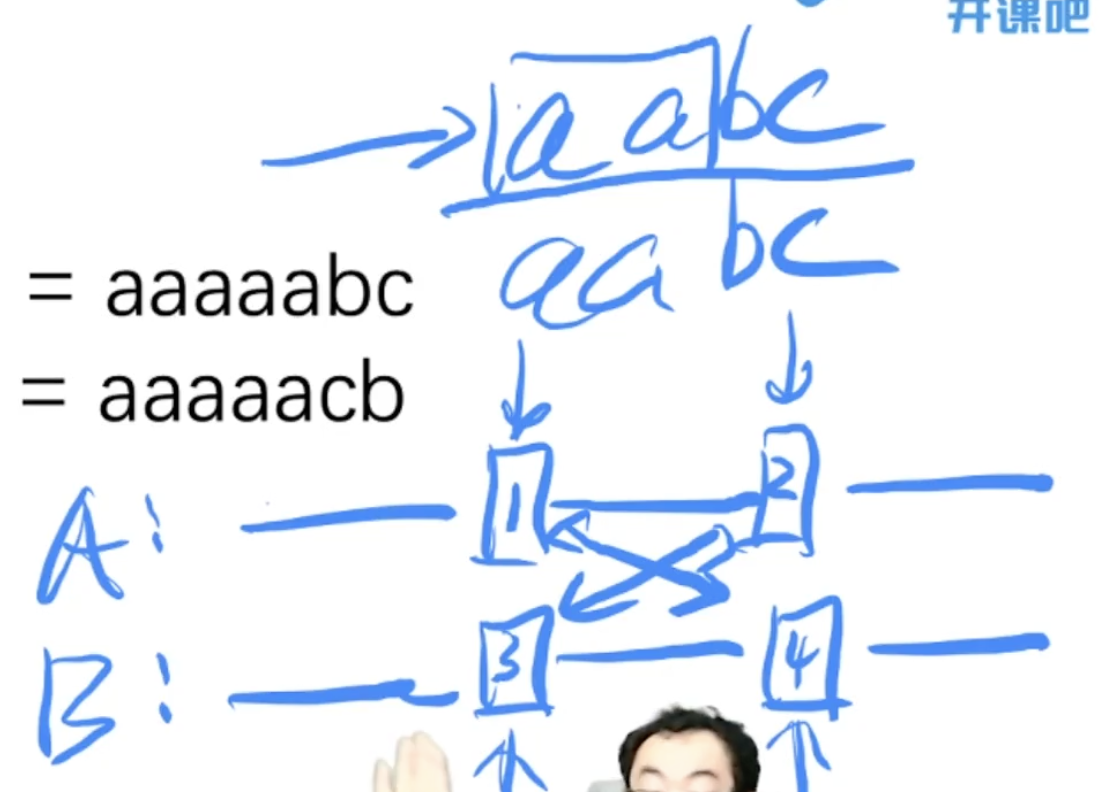 开课吧
aabc
aabc
= aaaaabc
= aaaaacb
A: 1 2
B: 3 4